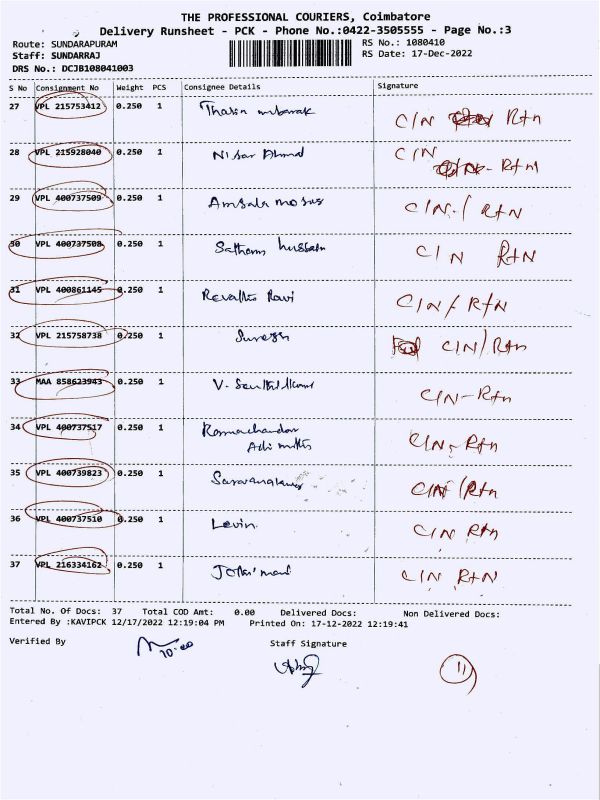 THE PROFESSIONAL COURIERS, Coimbatore
Delivery Runsheet - PCK - Phone No.:0422-3505555 - Page No.:3
Route: SUNDARAPURAM RS No.: 1080410
Staff: SUNDARRAJ RS Date: 17-Dec-2022
DRS No.: DCJB108041003
S No Consignment No Weight PCS Consignee Details Signature
27 VPL 215753412 0.250 1 Thalin mubarak C/N Rtn
28 VPL 215928040 0.250 1 Nisar Ahmed C/N Rtn
29 VPL 400737509 0.250 1 C/N-/ RtN
30 VPL 400737508 0.250 1 Satham hussain C/N RtN
31 VPL 400861145 0.250 1 Revathi Ravi C/N/ RtN
32 VPL 215758738 0.250 1 Suresh C/N/ Rtn
33 MAA 858623943 0.250 1 V. Senthil Kumar C/N-Rtn
34 VPL 400737517 0.250 1 Ramachandran C/N-Rtn
35 VPL 400739823 0.250 1 C/N/Rtn
36 VPL 400737510 0.250 1 Levin C/N Rtn
37 VPL 216334162 0.250 1 Jothimani C/N RtN
Total No. Of Docs: 37 Total COD Amt: 0.00 Delivered Docs: Non Delivered Docs:
Entered By :KAVIPCK 12/17/2022 12:19:04 PM Printed On: 17-12-2022 12:19:41
Verified By Staff Signature
10.00
11